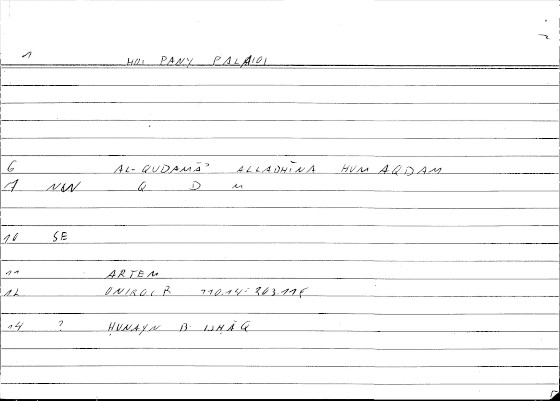 1 HOI PANY PALAIOI
6 AL-QUDAMĀʾ ALLADHĪNA HUM AQDAM
7 Q D M
10 SE
11 ARTEM
12 ONIROCR 110.14: 203.11
14 ? ḤUNAYN B ISḤĀQ